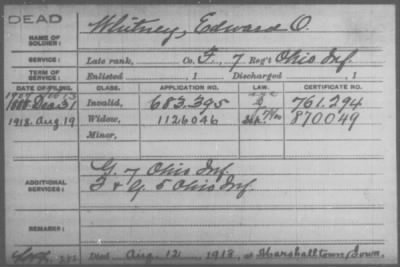 DEAD
NAME OF SOLDIER: Whitney, Edward O.
SERVICE: Late rank, Co. F, 7 Reg't Ohio Inf.
TERM OF SERVICE: Enlisted , 1 Discharged , 1
DATE OF FILING. CLASS. APPLICATION NO. LAW. CERTIFICATE NO.
1888 Dec 31 Invalid, 683.395 761.294
1918. Aug 19 Widow, 1126046 870049
Minor,
ADDITIONAL SERVICES: G. 7 Ohio Inf.
F & G. 5 Ohio Inf.
REMARKS:
Died Aug. 12, 1918, at Marshalltown, Iowa.